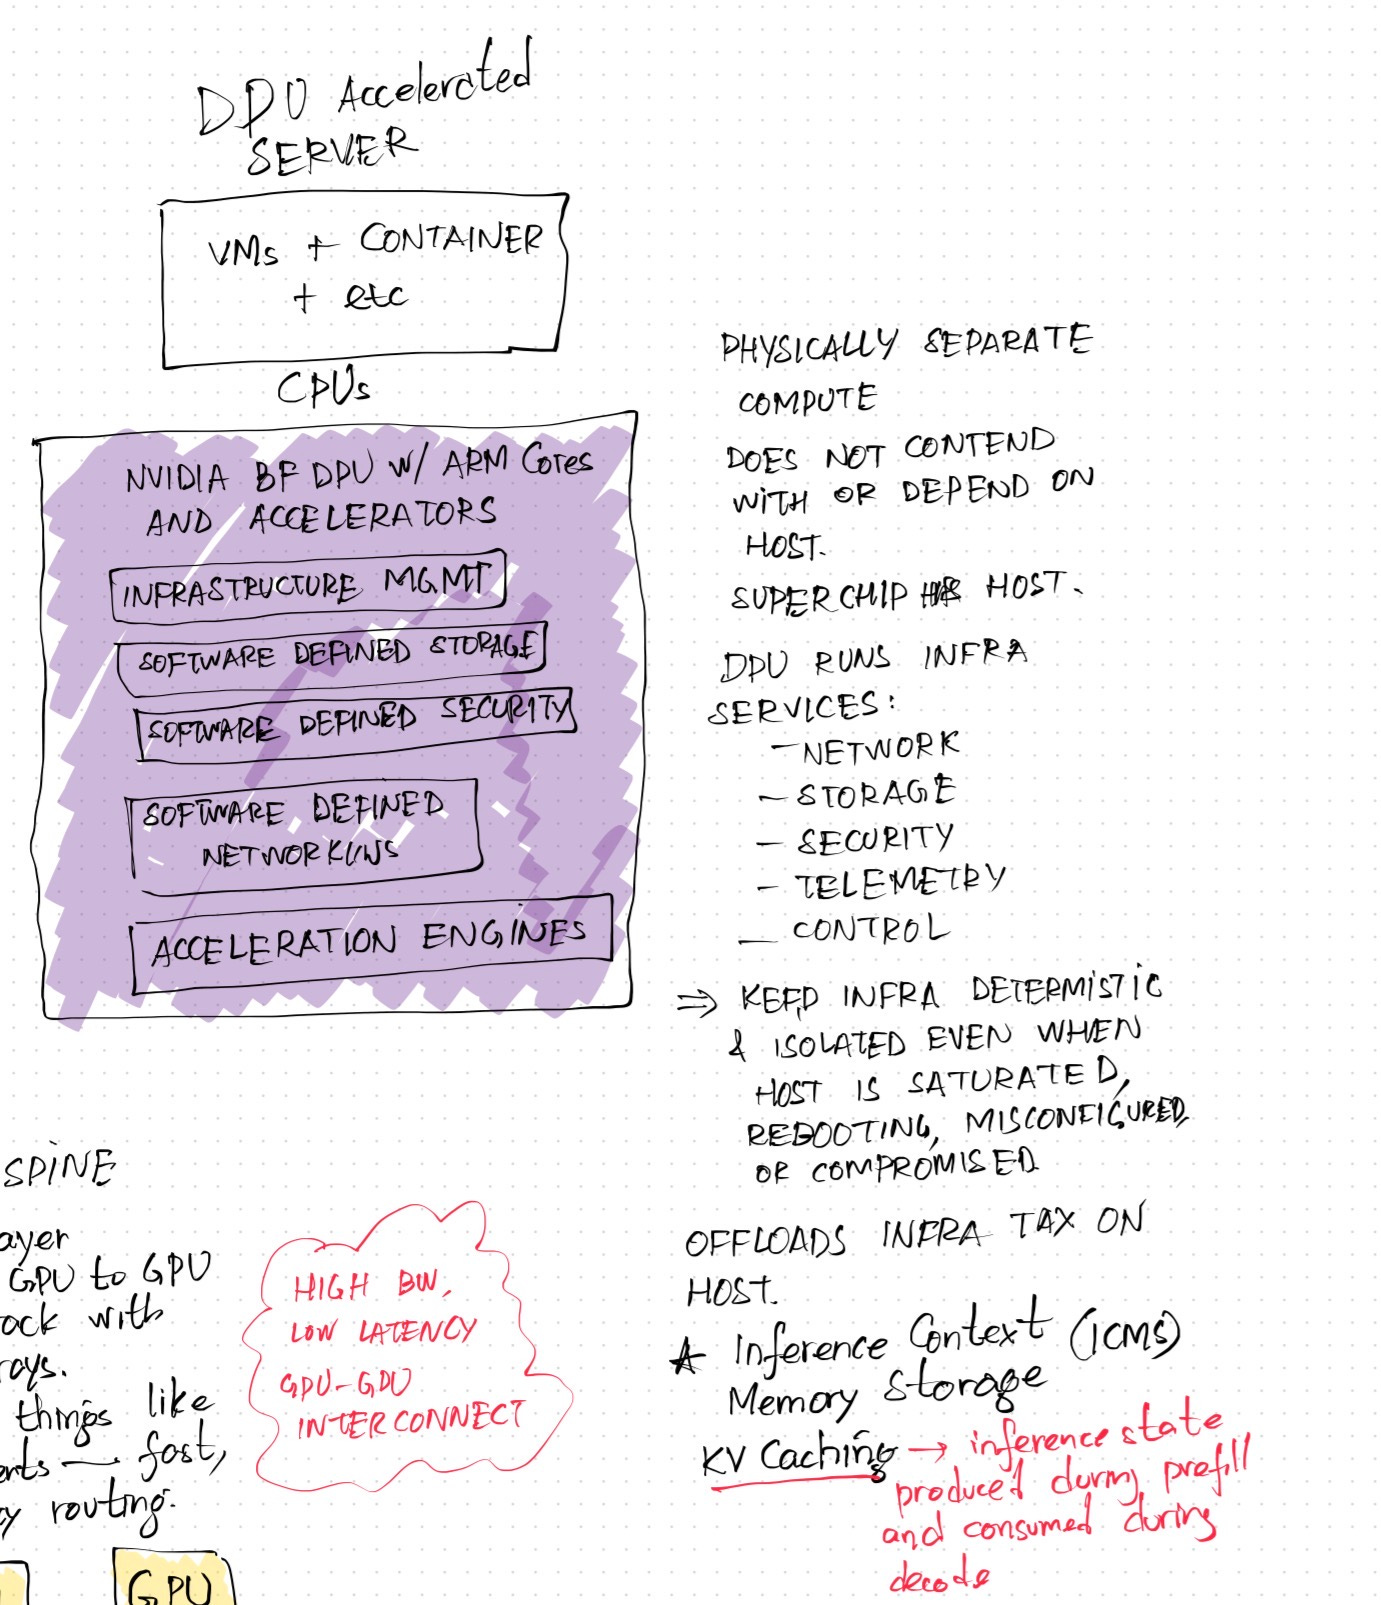 DPU Accelerated
SERVER
VMs + CONTAINER
+ etc
CPUs
NVIDIA BF DPU W/ ARM Cores
AND ACCELERATORS
INFRASTRUCTURE MGMT
SOFTWARE DEFINED STORAGE
SOFTWARE DEFINED SECURITY
SOFTWARE DEFINED
ACCELERATION ENGINES
PHYSICALLY SEPARATE
COMPUTE
DOES NOT CONTEND
WITH OR DEPEND ON
HOST.
SUPERCHIP HOST.
DPU RUNS INFRA
SERVICES:
- NETWORK
- STORAGE
- SECURITY
- TELEMETRY
- CONTROL
⇒ KEEP INFRA DETERMISTIC
& ISOLATED EVEN WHEN
HOST IS SATURATED,
REBOOTING, MISCONFIGURED,
OR COMPROMISED
OFFLOADS INFRA TAX ON
HOST.
★ Inference Context (ICMS)
Memory Storage
KV Caching → inference state
produced during prefill
and consumed during
decode
SPINE
ayer
GPU to GPU
ock with
rays.
things like
ents — fast,
cy routing.
HIGH BW,
LOW LATENCY
GPU-GPU
INTERCONNECT
GPU